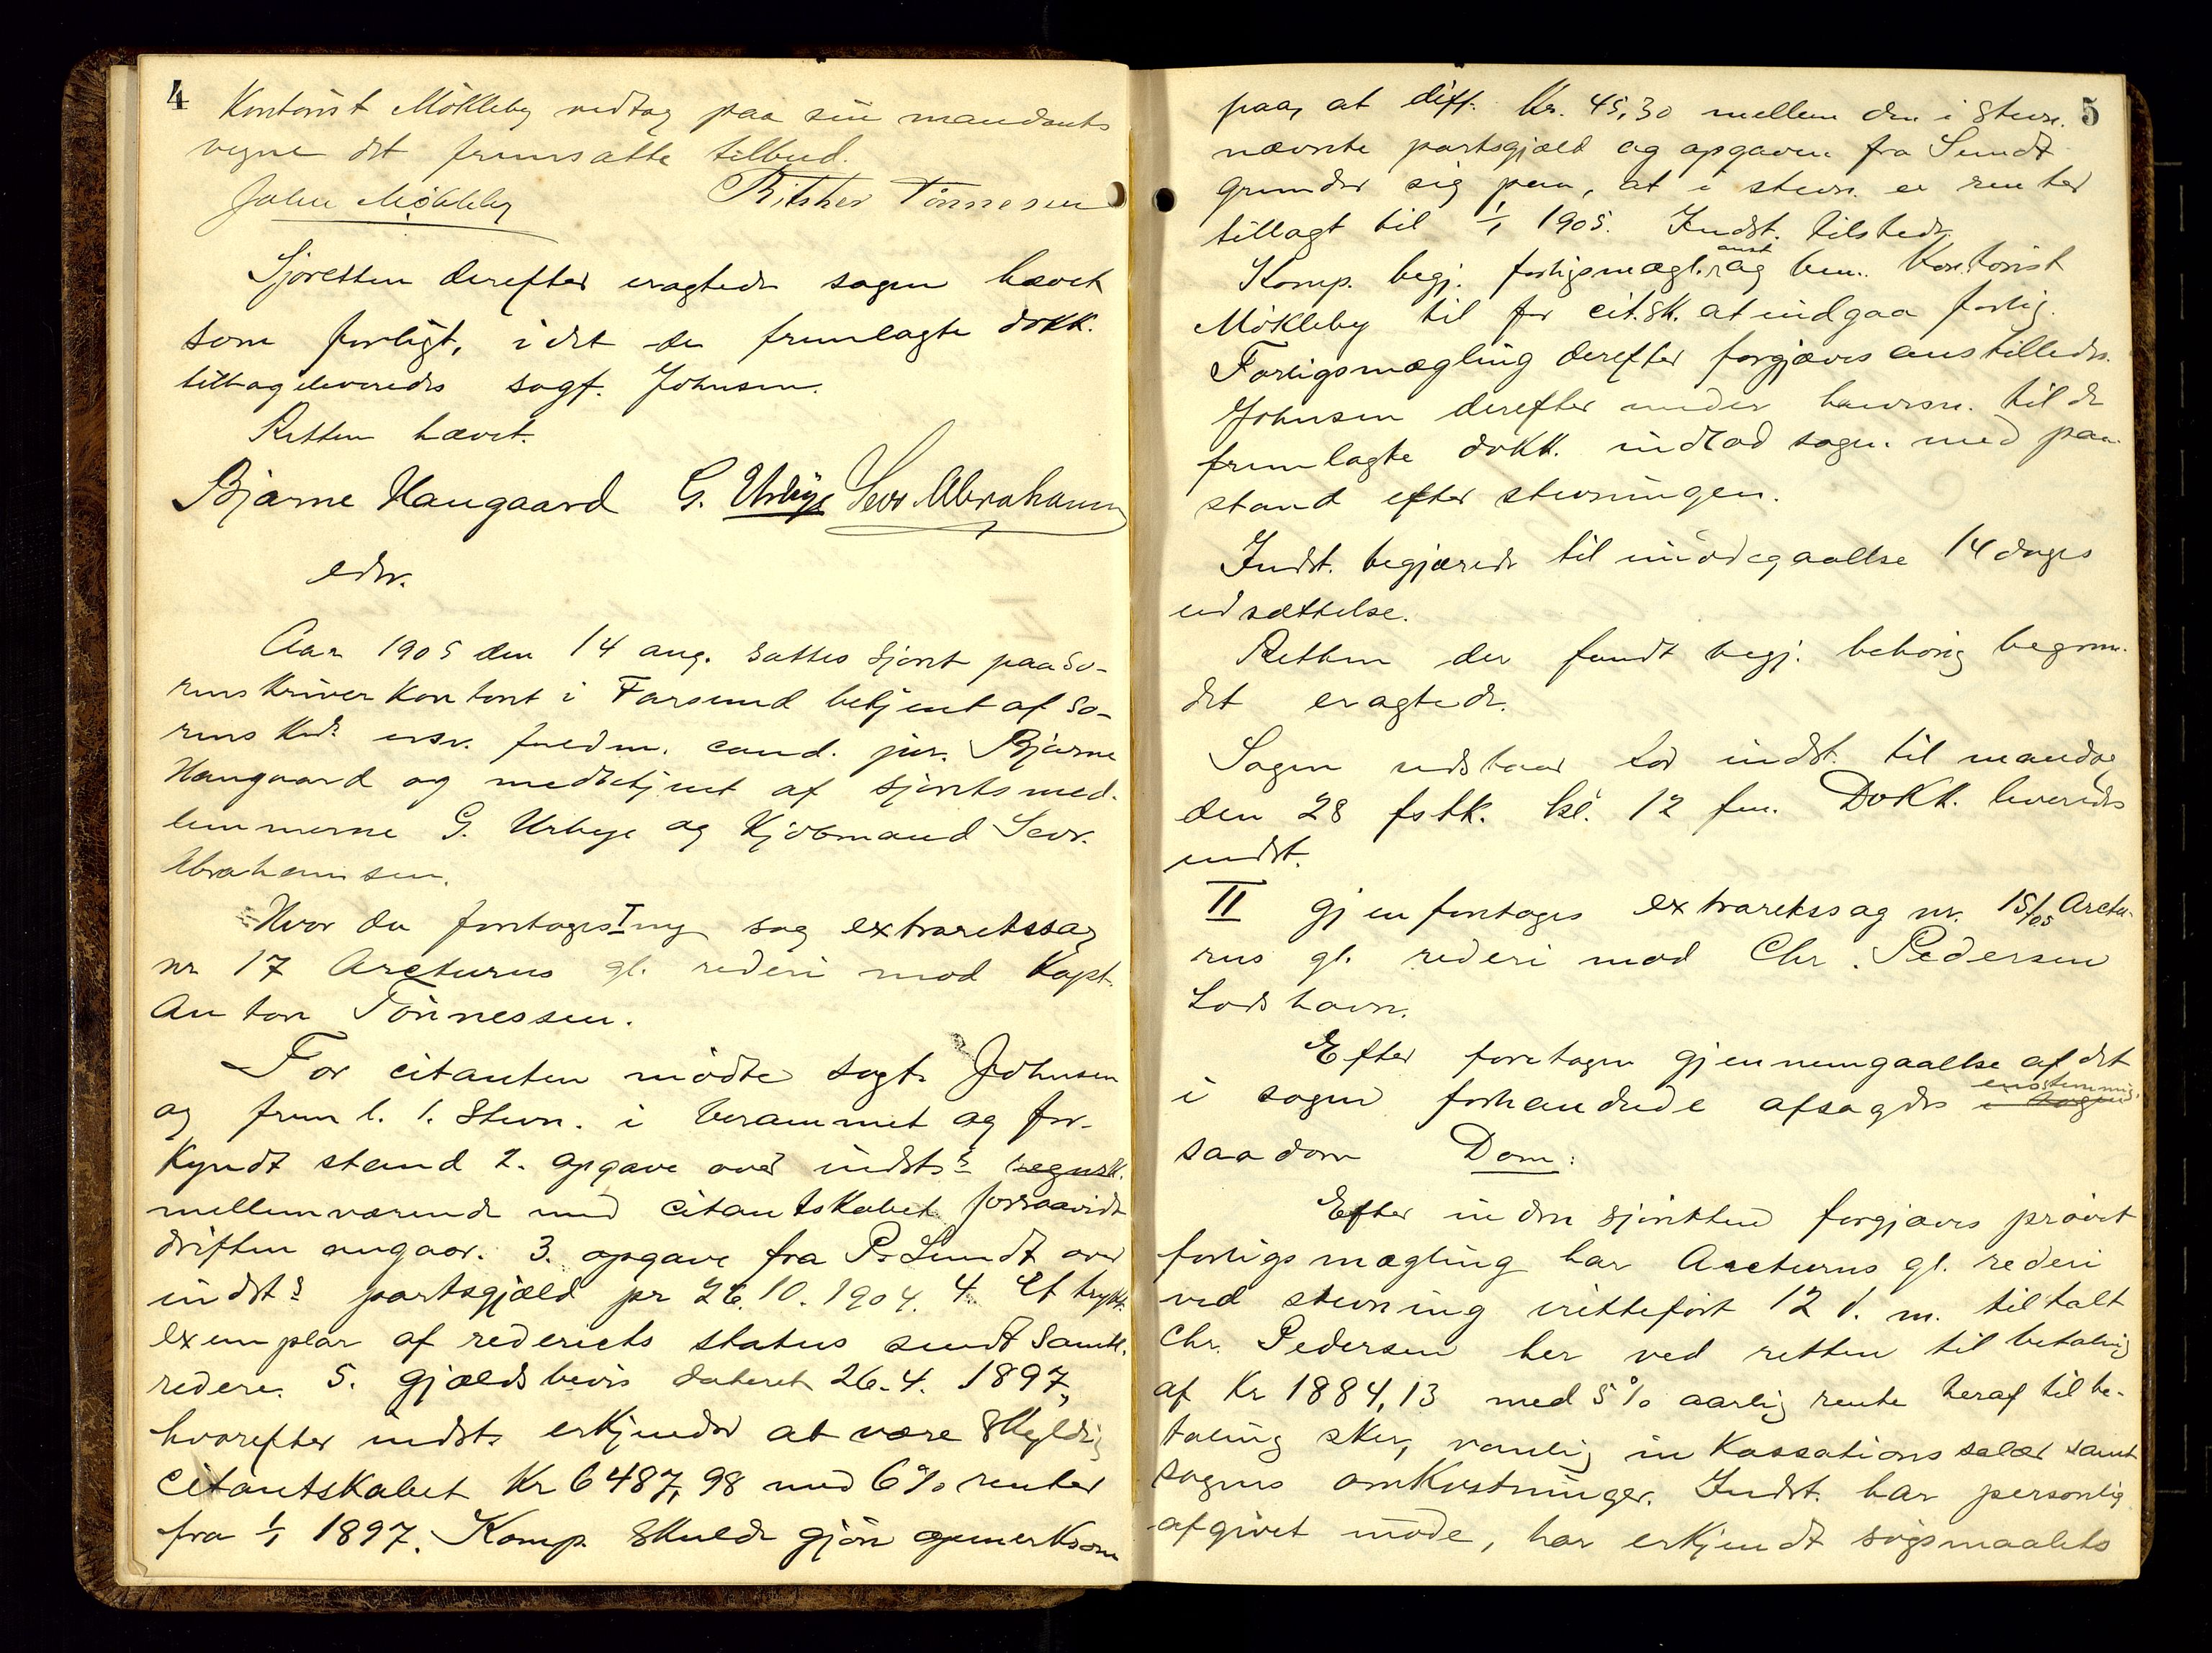 4
Kontorist Mökleby vedtog paa sin mandants
vegne det fremsatte tilbud.
John Mökleby Tönnesen
Sjöretten derefter eragtede sagen hævet
som forligt, idet de fremlagte dokk.
tilbageleveredes sagf. Johnsen.
Retten hævet.
Bjarne Haugaard G. Urbye Sevr. Abrahamsen
edsv.
Aar 1905 den 14 aug. sattes sjöret paa so-
renskriverkontoret i Farsund betjent af so-
rensk.s edsv. fuldm. cand. jur. Bjarne
Haugaard og medbetjent af sjöretsmed-
lemmerne G. Urbye og Kjöbmand Sevr.
Abrahamsen.
Hvor da foretoges I ny sag extraretssag
nr 17 Arcturus gl. rederi mod Kapt.
Anton Tönnessen.
For citanten mödte sagf. Johnsen
og freml. 1. Stevn. i berammet og for-
kyndt stand 2. opgave over indst.s regnsk.
mellemværende med citantskabet forsaavidt
driften angaar. 3. opgave fra P. Sundt over
indst.s partsgjæld pr 26.10.1904. 4. Et trykt
exemplar af rederiets status sendt samtl.
redere. 5. gjældsbevis dateret 26.4. 1897,
hvorefter indst. erkjender at være skyldig
citantskabet Kr 6487,98 med 6% renter
fra 1/1 1897. Komp. skulde gjöre opmerksom
5
paa, at diff. Kr. 45,30 mellem den i Stevn.
nævnte partsgjæld og opgaven fra Sundt
grunder sig paa, at i stevn. er renter
tillagt til 1/1 1905. Indst. tilstede.
Komp. begj. forligsmægl. anst. og bem. Kontorist
Mökleby til for cit.sk. at indgaa forlig.
Forligsmægling derefter forgjæves anstilledes.
Johnsen derefter under henvisn. til de
fremlagte dokk. indlod sagen med paa-
stand efter stevningen.
Indst. begjærede til imödegaaelse 14 dages
udsættelse.
Retten der fandt begj. behörig begrun-
det eragtede.
Sagen udstaar for indst. til mandag
den 28 fstk. kl. 12 fm. Dokk. leveredes
indst.
II gjenforetoges extraretssag nr. 15/05 Arctu-
rus gl. rederi mod Chr. Pedersen
Lodshavn.
Efter foretagen gjennemgaaelse af det
i sagen forhandlede afsagdes i sagen enstemmig
saadan Dom:
Efter inden sjöretten forgjæves prövet
forligsmægling har Arcturus gl. rederi
ved stevning iretteført 12 d. m. tiltalt
Chr. Pedersen her ved retten til betaling
af Kr 1884,13 med 5% aarlig rente heraf til be-
taling sker, vanlig inkassationssalær samt
sagens omkostninger. Indst. har personlig
afgivet möde, har erkjendt sögsmaalets